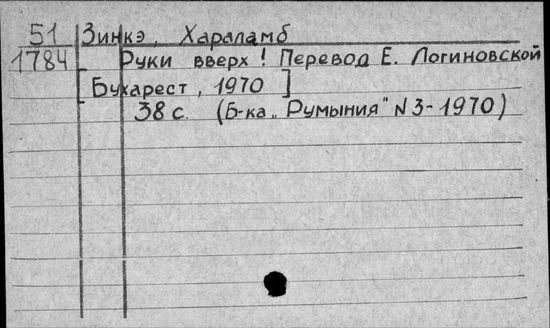 51 Зинкэ, Хараламб
1784 Руки вверх! Перевод Е. Логиновской
[Бухарест, 1970]
38 с. (Б-ка „Румыния" N 3-1970)